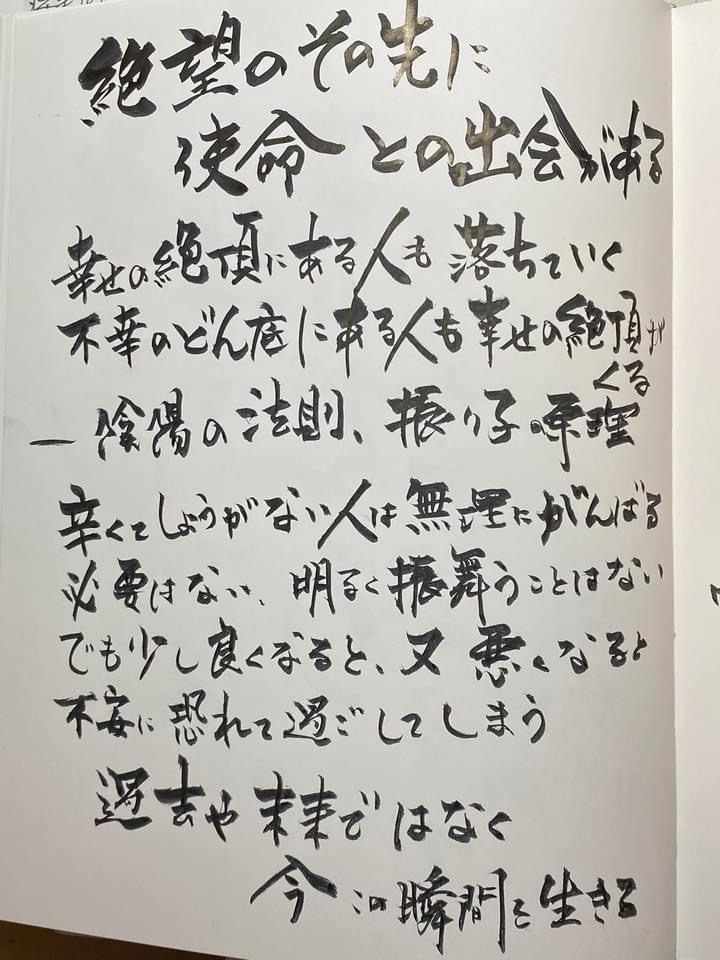 絶望のその先に
使命との出会がある
幸せの絶頂にある人も落ちていく
不幸のどん底にある人も幸せの絶頂が
くる
ー陰陽の法則、振り子の原理
辛くてしょうがない人は無理にがんばる
必要はない、明るく振舞うことはない
でも少し良くなると、又悪くなると
不安に恐れて過ごしてしまう
過去や未来ではなく
今この瞬間を生きる